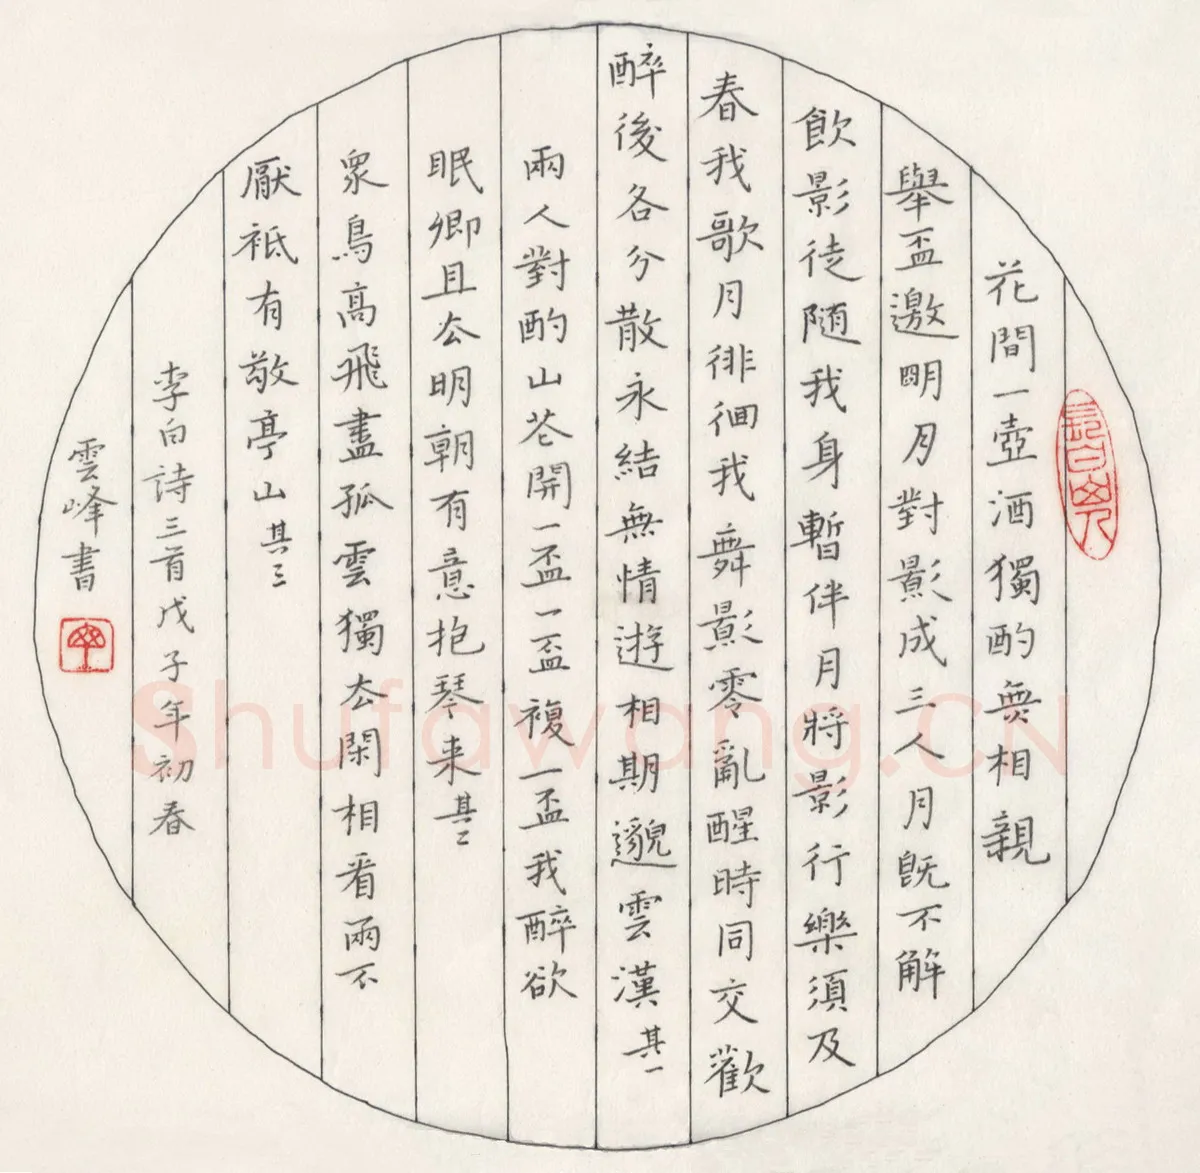 花間一壺酒獨酌無相親
舉盃邀明月對影成三人月既不解
飲影徒随我身暫伴月將影行樂須及
春我歌月徘徊我舞影零亂醒時同交歡
醉後各分散永結無情遊相期邈雲漢其一
兩人對酌山花開一盃一盃複一盃我醉欲
眠卿且去明朝有意抱琴来其二
衆鳥高飛盡孤雲獨去閑相看兩不
厭祗有敬亭山其三
李白詩三首戊子年初春
雲峰書
Shufawang.CN